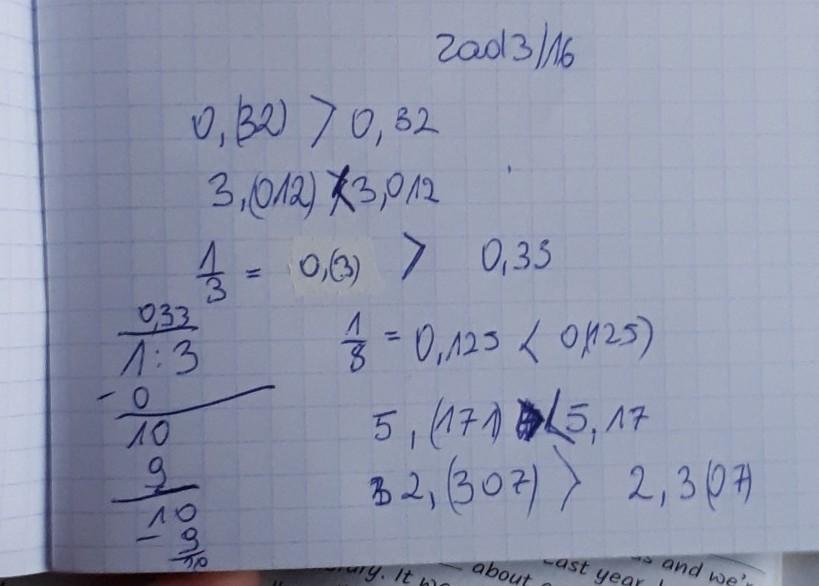 zad 3/16
0,(32) > 0,32
3,(012) 3,012
1/3 = 0,(3) > 0,33
0,33
1:3
-0
10
9
-10
9
10
1/8 = 0,125 < 0,(125)
5,(171) < 5,17
2,(307) > 2,3(07)
It
about
Last year
and we'r